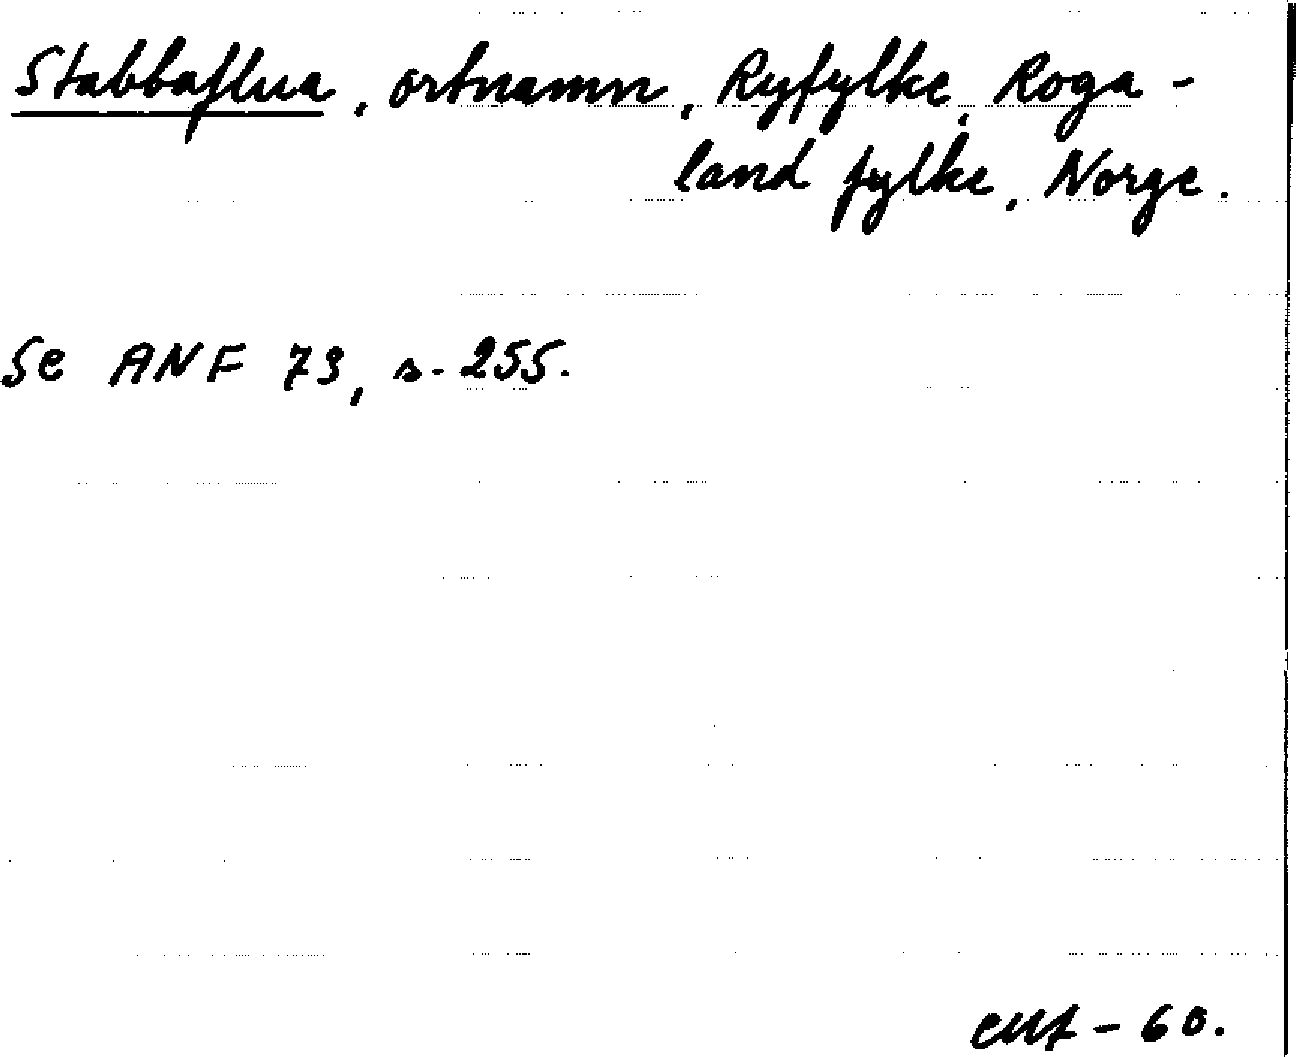 Stabbaflua, ortnamn, Ryfylke, Roga-
land fylke, Norge.
Se ANF 73, s. 255.
- 60.